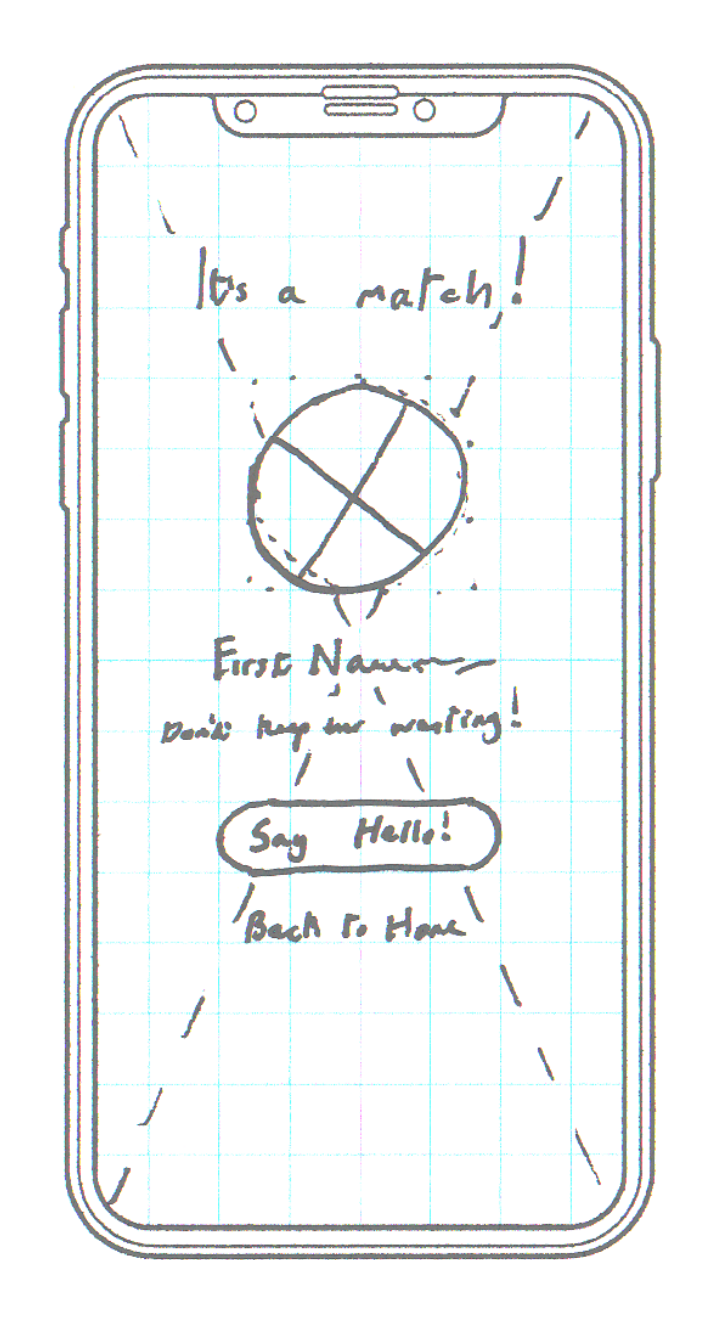 It's a match!
First Name
Don't keep them waiting!
Say Hello!
Back to Home